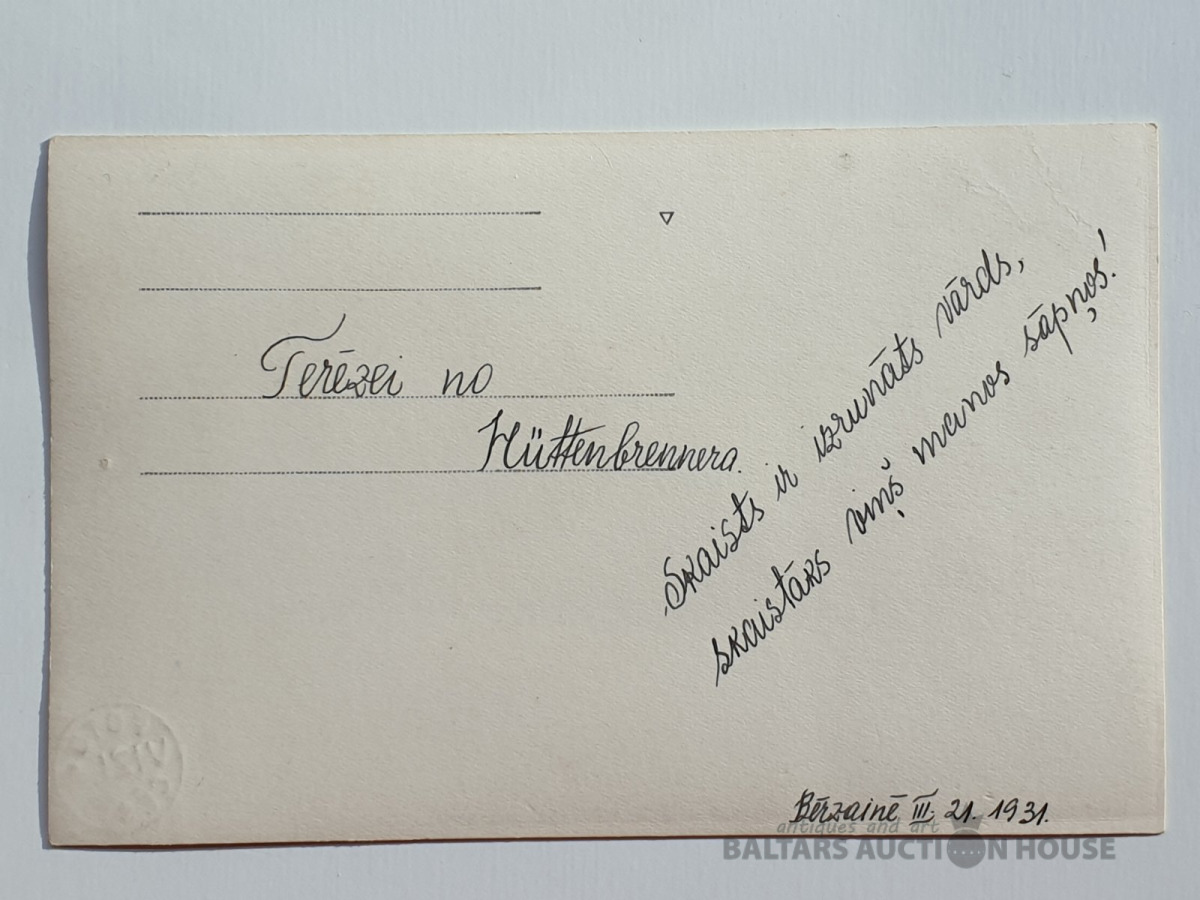 Terēzei no
Hüttenbrennera.
Skaists ir izrunāts vārds,
skaistāks viņš manos sāpņos!
Bērzainē III. 21. 1931.
antiques and art
BALTARS AUCTION HOUSE